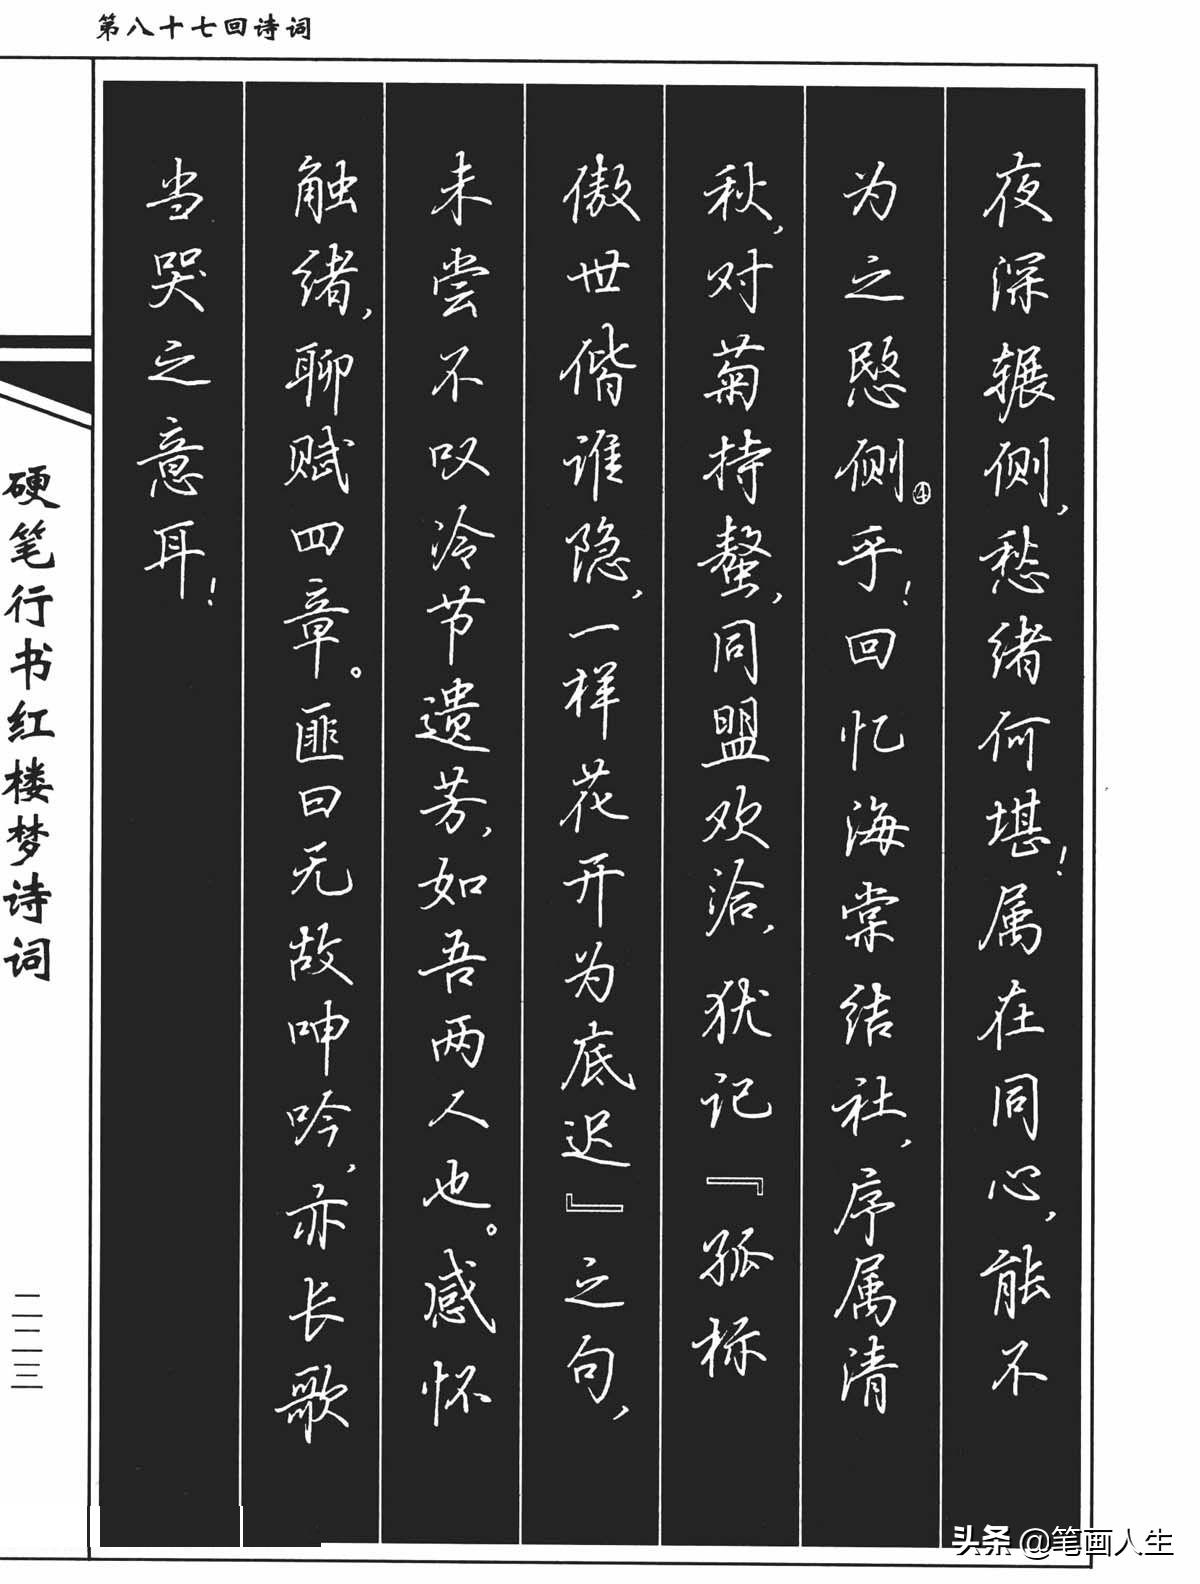 第八十七回诗词
夜深辗侧，愁绪何堪！属在同心，能不
为之愍侧④乎！回忆海棠结社，序属清
秋，对菊持螯，同盟欢洽，犹记『孤标
傲世偕谁隐，一样花开为底迟』之句，
未尝不叹冷节遗芳，如吾两人也。感怀
触绪，聊赋四章。匪曰无故呻吟，亦长歌
当哭之意耳！
硬笔行书红楼梦诗词
二二三
头条 @笔画人生